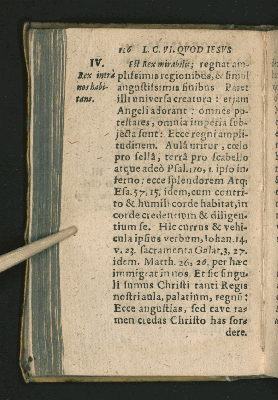 126 L. C. VI. QUOD IESUS
IV. Est Rex mirabilis; regnat am-
Rex intrà plissimis regionibus, & simul
nos habi- angustissimis finibus Paret
tans. illi universa creatura: etiam
Angeli adorant: omnes po-
testates, omnia imperia sub-
jecta sunt: Ecce regni ampli-
tudinem. Aulâ utitur, cœlo
pro sellâ, terrâ pro scabello
atque adeò Psal. 110, 1. ipso in-
ferno: ecce splendorem Atq;
Esa. 57, 15, idem, cum contri-
to & humili corde habitat, in
corde credentium & diligen-
tium se. Hic currus & vehi-
cula ipsius verbum, Iohan. 14.
v. 23. sacramenta Galat. 3, 27.
idem. Matth. 26, 26. per hæc
immigrat in nos. Et sic singu-
li sumus Christi tanti Regis
nostri aula, palatium, regnũ:
Ecce angustias, sed cave ta-
men credas Christo has sor-
dere.